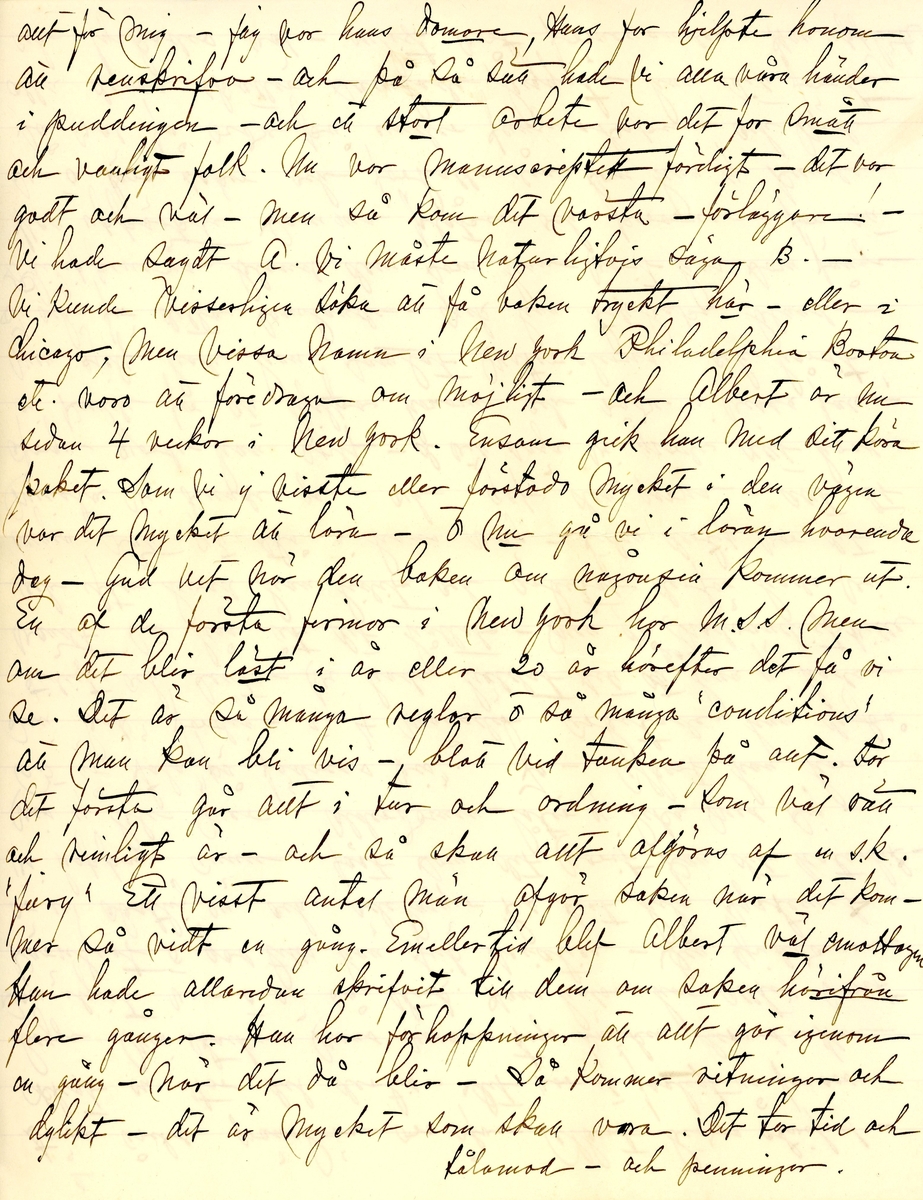 allt för mig – jag var hans domare, Hans far hjelpte honom
att renskrifva – och på så sätt hade vi alla våra händer
i puddingen – och ett stort arbete var det för smått
och vanligt folk. Nu var manuscriptet färdigt – det var
godt och väl – men så kom det värsta – förläggare! –
Vi hade sagdt A. Vi måste naturligtvis säga B. –
Vi kunde visserligen söka att få boken tryckt här – eller i
Chicago, men vissa namn i New York Philadelphia Boston
etc. voro att föredraga om möjligt – och Albert är nu
sedan 4 veckor i New York. Ensam gick han med sitt kära
paket. Som vi ej visste eller förstodo mycket i den vägen
var det mycket att lära – o nu gå vi i läran hvarenda
dag – Gud vet när den boken om någonsin kommer ut.
En af de första firmor i New York har M.S.S. Men
om det blir läst i år eller 20 år härefter det få vi
se. Det är så många reglar o så många "conditions"
att man kan bli vis –, blott vid tanken på allt. För
det första går allt i tur och ordning – som väl rätt
och rimligt är – och så skall allt afgöras af en s.k.
"jury" Ett visst antal män afgör saken när det kom-
mer så vidt en gång. Emellertid blef Albert väl emottagen
Han hade allaredan skrifvit till dem om saken härifrån
flere gånger. Han har förhoppningar att allt går igenom
en gång – när det då blir – Så kommer ritningar och
dylikt – det är mycket som skall vara. Det tar tid och
tålamod – och penningar.